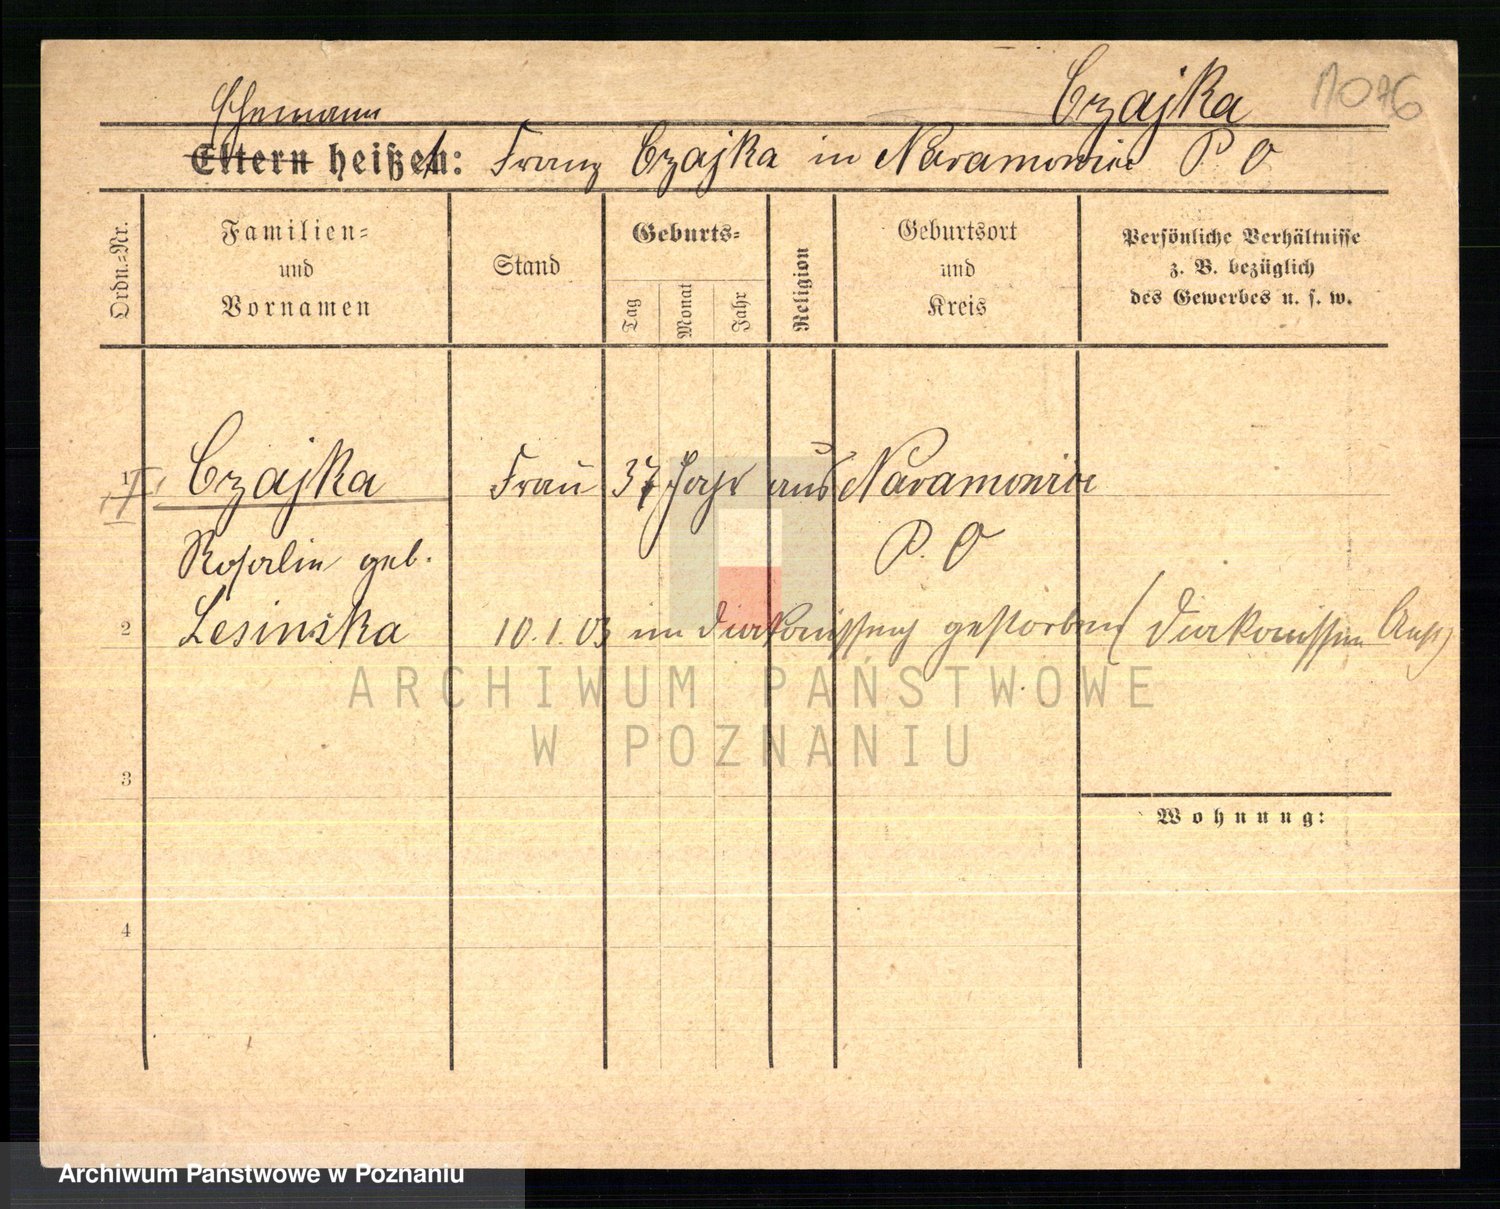 Czajka 11076
Ehemann
Eltern heißt: Franz Czajka in Naramowice P. O
Ordn.-Nr.
Familien-
und
Vornamen
Stand
Geburts-
Tag
Monat
Jahr
Religion
Geburtsort
und
Kreis
Persönliche Verhältnisse
z. B. bezüglich
des Gewerbes u. s. w.
1 Czajka Frau 37 Jahr aus Naramowice
Rosalie geb. P. O
2 Lesinska 10.1.03 im gestorben (Diakonissen Anst)
ARCHIWUM PAŃSTWOWE
W POZNANIU
3
Wohnung:
4
Archiwum Państwowe w Poznaniu